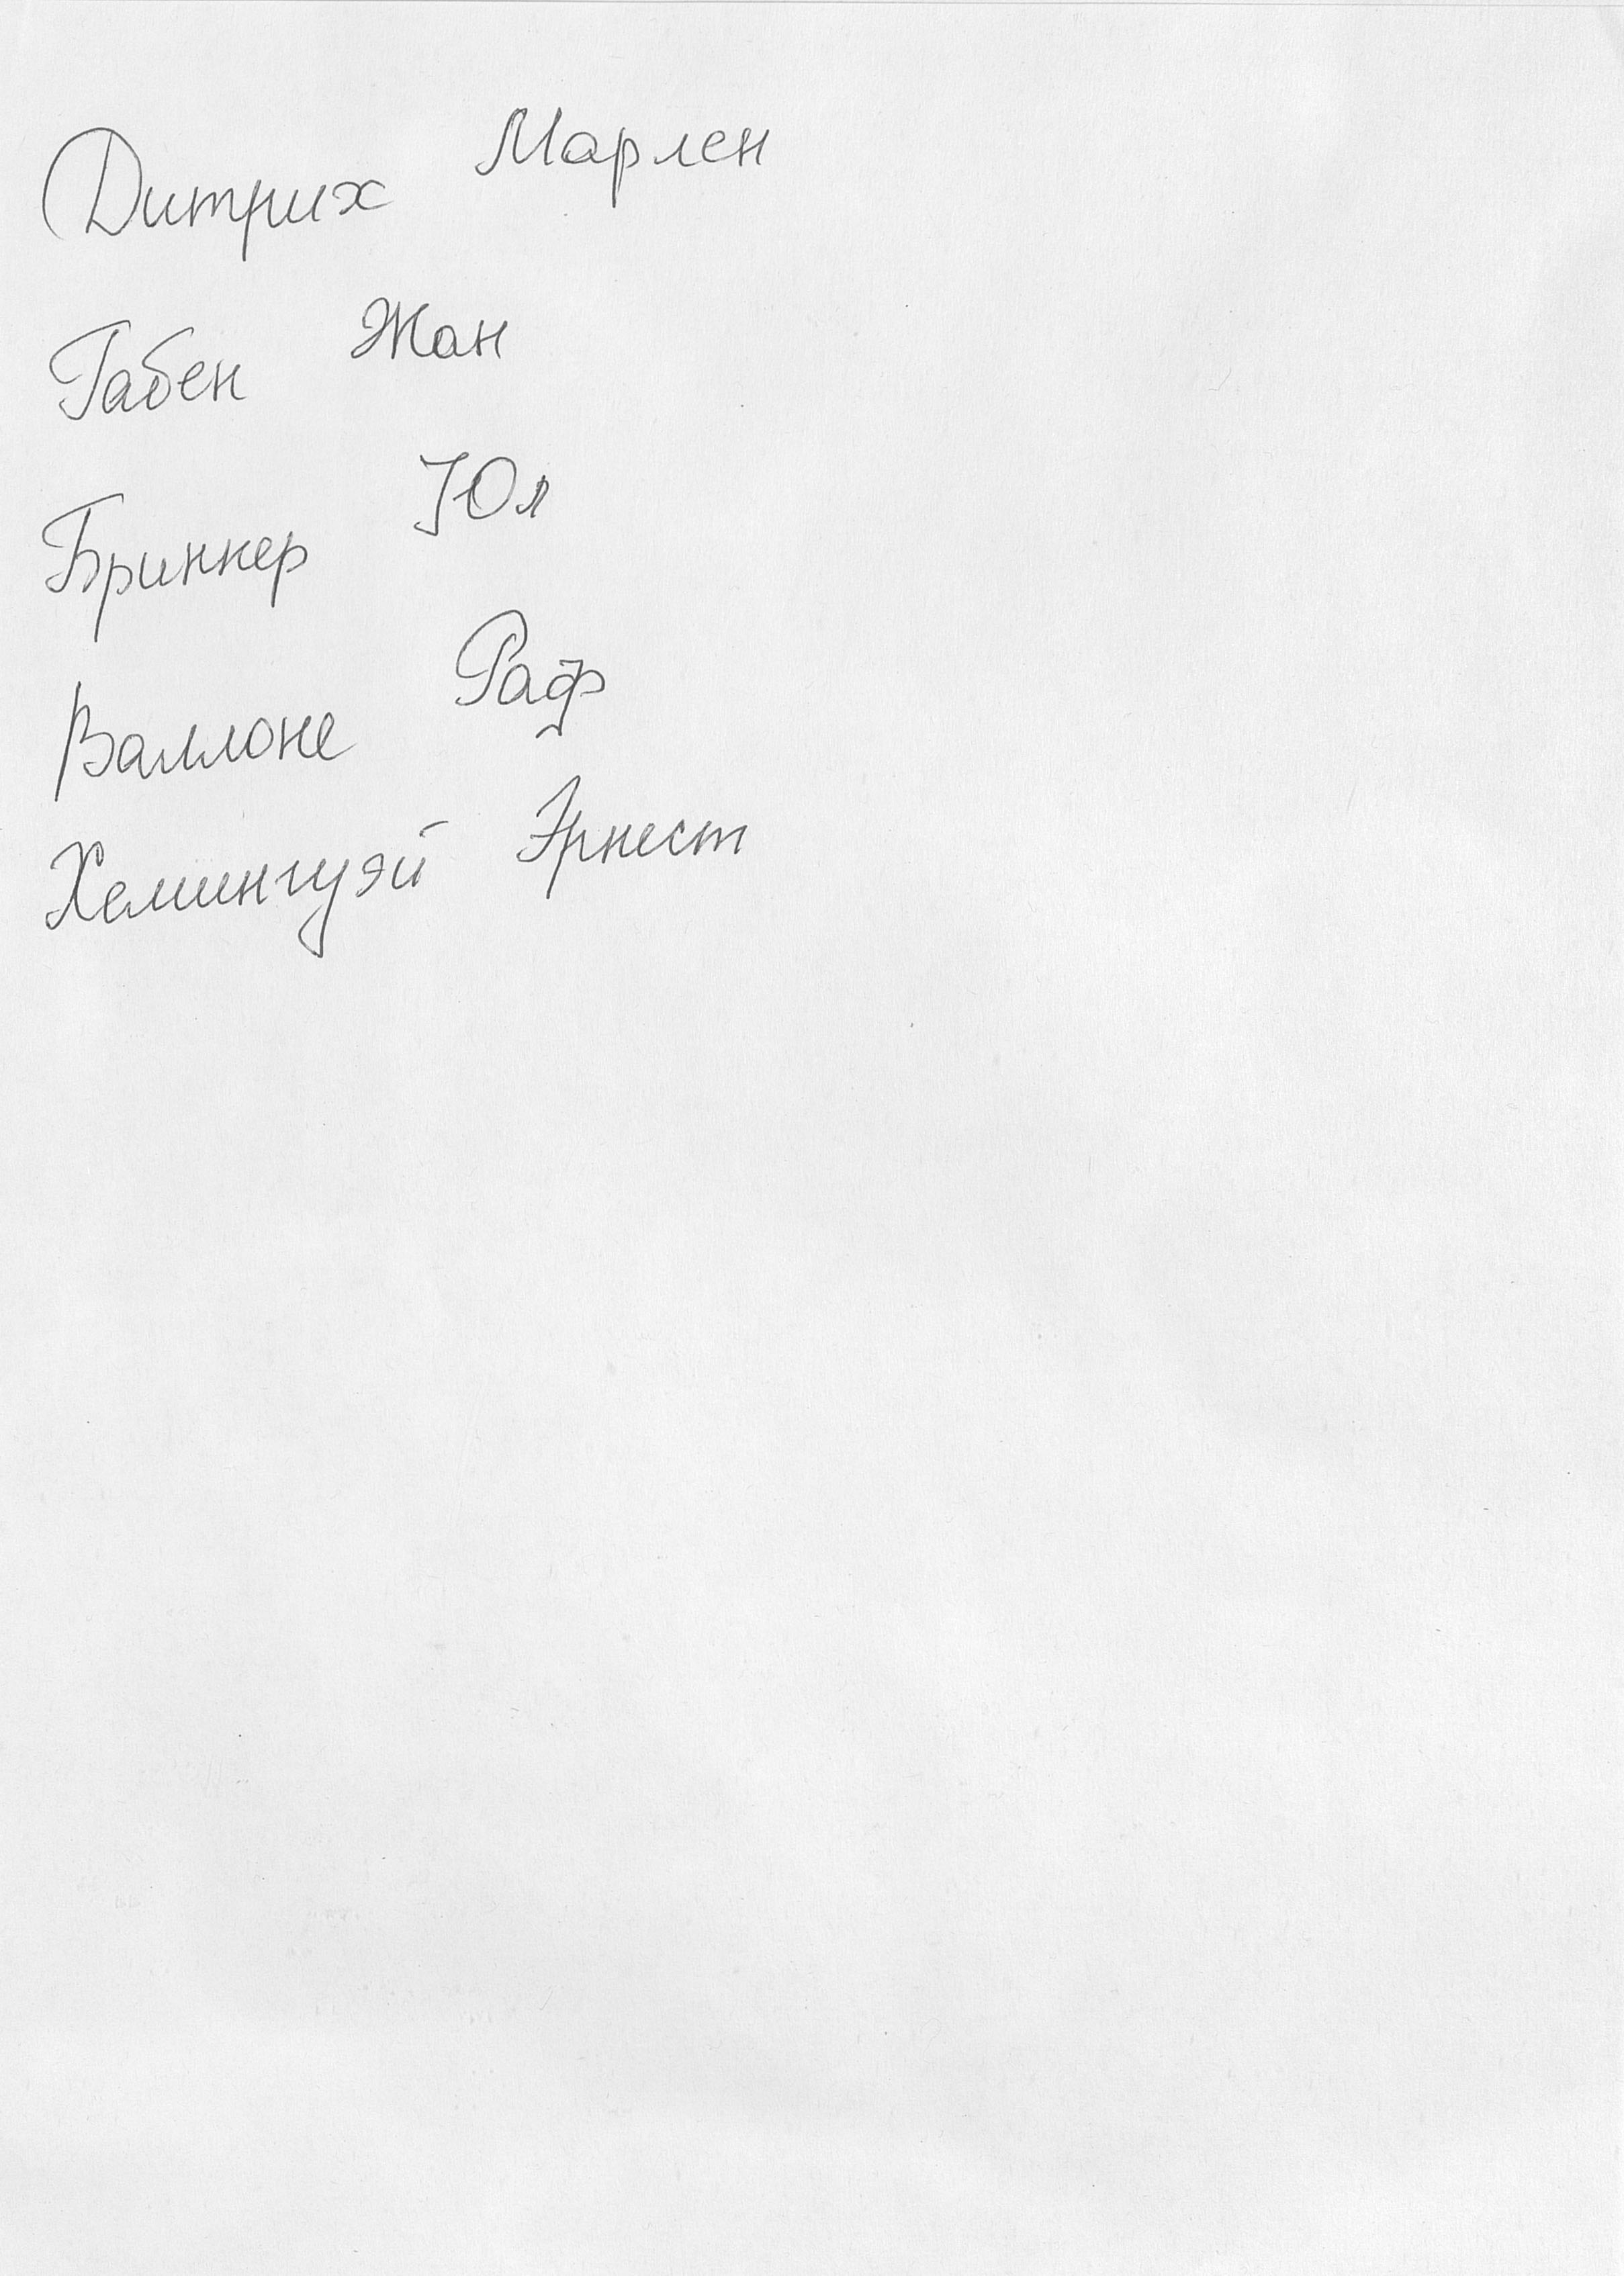 Дитрих Марлен
Габен Жан
Бриннер Юл
Валлоне Раф
Хемингуэй Эрнест